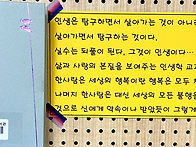 인생은 탐구하면서 살아가는 것이 아니라
탐구하는 것이다.
실수는 되풀이 된다. 그것이 인생이다…
삶과 사랑의 본질을 보여주는 인생학 교과
한사람은 세상의 행복이란 행복은 모두
나머지 한사람은 대신 세상의 모든 불행을
것으로 신에게 약속이나 받았듯이 그렇게